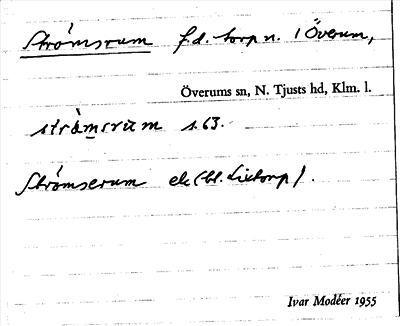 Strömsrum f.d. torp n. i Överum,
Överums sn, N. Tjusts hd, Klm. l.
stròmsrum s. 63.
Strömserum ek (bl.
Ivar Modéer 1955